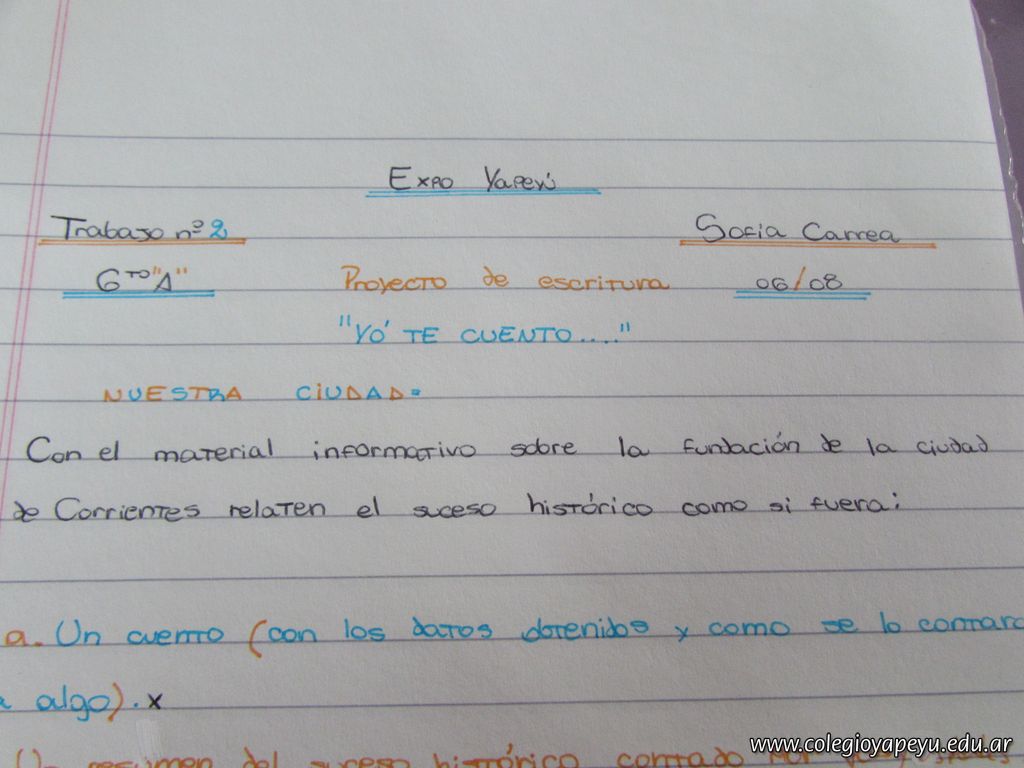 Expo Yapeyú
Trabajo nº 2
Sofia Carrea
6to "A"
Proyecto de escritura
06/08
"YO' TE CUENTO...."
NUESTRA CIUDAD:
Con el material informativo sobre la fundación de la ciudad
de Corrientes relaten el suceso histórico como si fuera:
a. Un cuento (con los datos obtenidos y como se lo contara
a algo). x
Un resumen del suceso histórico contado por
www.colegioyapeyu.edu.ar